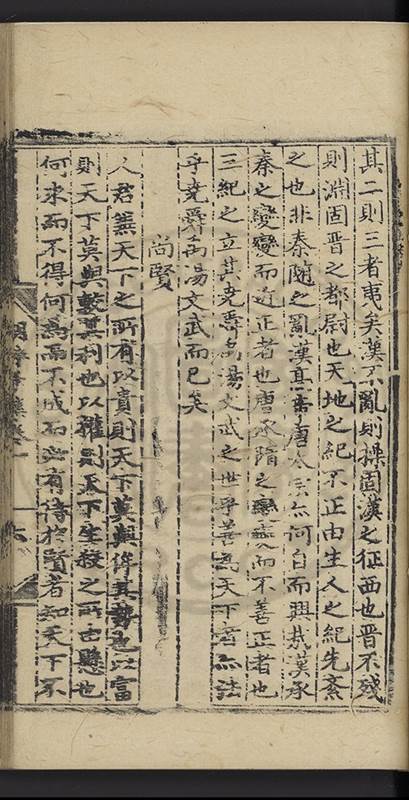 其二則三者夷矣漢不亂則操固漢之征西也晋不殘
則淵固晋之都尉也天地之紀不正由生人之紀先紊
之也非秦隨之亂漢髙帝唐太宗亦何自而興哉漢承
秦之變變而近正者也唐承隋之變變而不善正者也
三紀之立其堯舜禹湯文武之世乎善為天下者亦法
乎堯舜禹湯文武而已矣
尚賢
人君兼天下之所有以貴則天下莫與侔其勢也以富
則天下莫與較其利也以權則天下生殺之所由懸也
何求而不得何為而不成而必有待於賢者知天下不